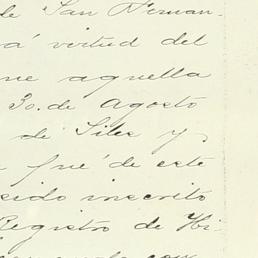 de San Fernan-
á virtud del
que aquella
30. de Agosto
de Siles y
fué de este
sido inscrito
Registro de Hi-